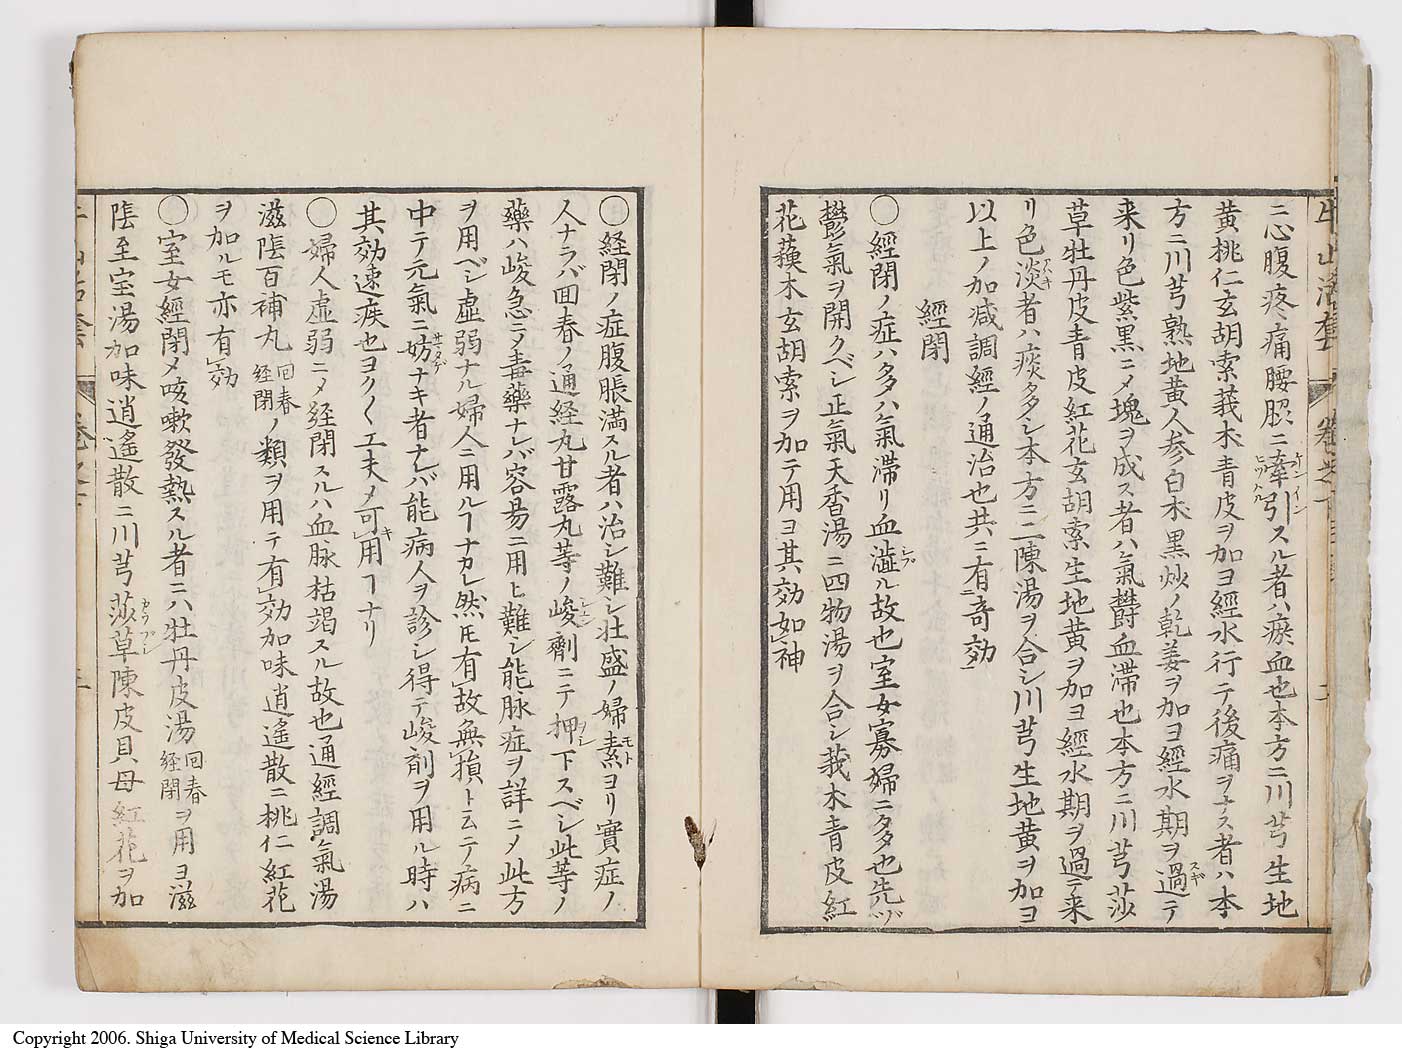 ニ心腹疼痛腰胯ニ牽引スル者ハ瘀血也本方ニ川芎生地
黄桃仁玄胡索莪朮青皮ヲ加ヨ經水行テ後痛ヲナス者ハ本
方ニ川芎熟地黄人参白朮黒炒ノ乾姜ヲ加ヨ經水期ヲ過テ
来リ色紫黒ニメ塊ヲ成ス者ハ氣欝血滞也本方ニ川芎莎
草牡丹皮青皮紅花玄胡索生地黄ヲ加ヨ經水期ヲ過テ来
リ色淡者ハ痰多シ本方ニ二陳湯ヲ合シ川芎生地黄ヲ加ヨ
以上ノ加减調經ノ通治也共ニ有奇効
經閉
〇經閉ノ症ハ多ハ氣滞リ血澁ル故也室女寡婦ニ多也先ヅ
鬱氣ヲ開クベシ正氣天香湯ニ四物湯ヲ合シ莪朮青皮紅
花蘓木玄胡索ヲ加テ用ヨ其効如神
〇経閉ノ症腹脹満スル者ハ治シ難シ壮盛ノ婦素ヨリ實症ノ
人ナラバ回春ノ通経丸甘露丸等ノ峻劑ニテ押下スベシ此等ノ
藥ハ峻急ニメ毒藥ナレバ容易ニ用ヒ難シ能脉症ヲ詳ニメ此方
ヲ用ベシ虚弱ナル婦人ニ用ルヿナカレ然𪜈有故無損トムニテ病ニ
中テ元氣ニ妨ナキ者ナレバ能病人ヲ診シ得テ峻剤ヲ用ル時ハ
其効速疾也ヨク〱工夫メ可用ヿナリ
〇婦人虚弱ニメ経閉スルハ血脉枯竭スル故也通經調氣湯
滋陰百補丸回春経閉ノ類ヲ用テ有効加味逍遙散ニ桃仁紅花
ヲ加ルモ亦有効
〇室女經閉メ咳嗽發熱スル者ニハ牡丹皮湯回春経閉ヲ用ヨ滋
陰至宝湯加味逍遙散ニ川芎莎草陳皮貝母紅花ヲ加
Copyright 2006. Shiga University of Medical Science Library